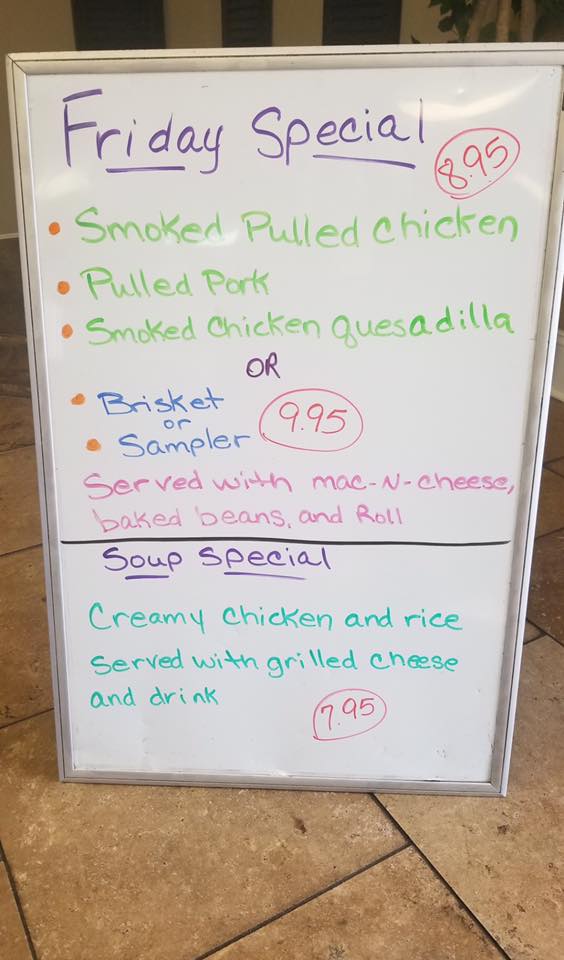 Friday Special 8.95
• Smoked Pulled Chicken
• Pulled Pork
• Smoked Chicken Quesadilla
OR
• Brisket 9.95
or
• Sampler
Served with mac-N-cheese,
baked beans, and Roll
Soup Special
Creamy Chicken and rice
Served with grilled cheese
and drink
7.95